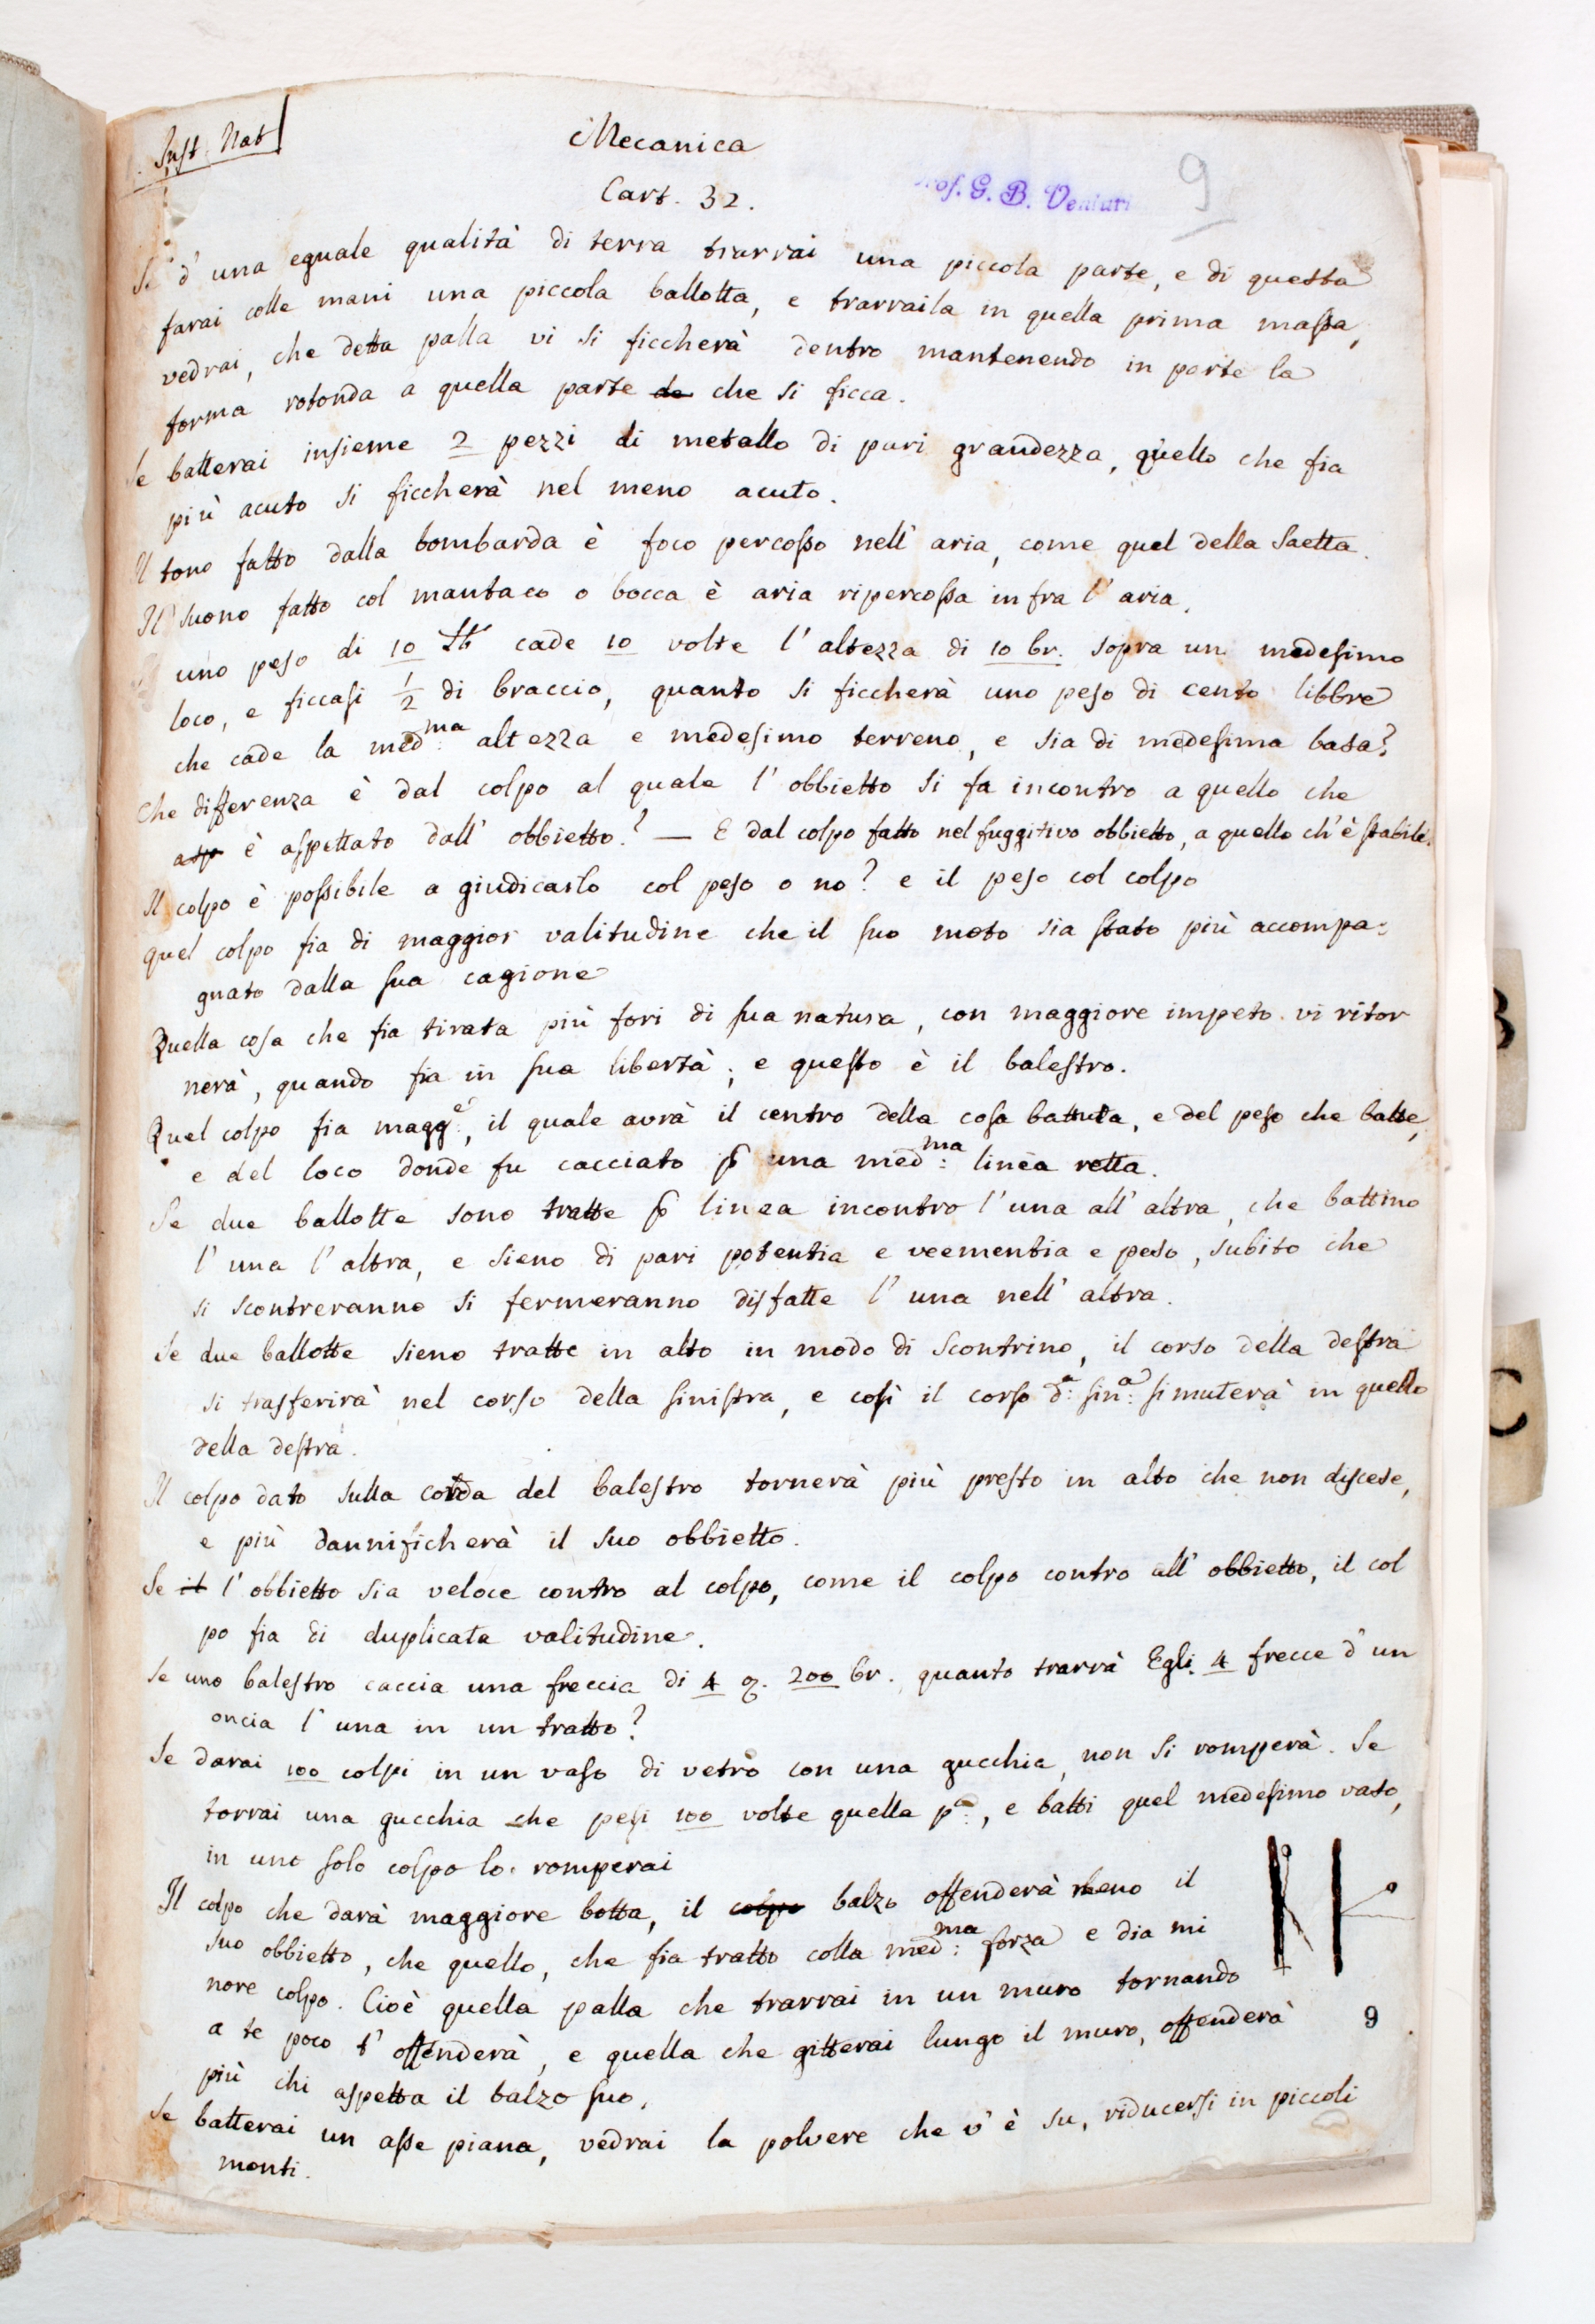 Inst. Nat
Mecanica
Cart. 32.
Prof. G. B. Venturi
9
Se d' una eguale qualità di terra trarrai una piccola parte, e di questa
farai colle mani una piccola ballotta, e trarraila in quella prima massa,
vedrai, che detta palla vi si ficcherà dentro mantenendo in parte la
forma rotonda a quella parte de che si ficca.
Se batterai insieme 2 pezzi di metallo di pari grandezza, quello che fia
più acuto si ficcherà nel meno acuto.
Il tono fatto dalla bombarda è foco percosso nell' aria, come quel della Saetta.
Il suono fatto col mantaco o bocca è aria ripercossa infra l' aria.
uno peso di 10 ℔ cade 10 volte l' altezza di 10 br. sopra un medesimo
loco, e ficcasi 1/2 di braccio, quanto si ficcherà uno peso di cento libbre
che cade la med:ma altezza e medesimo terreno, e sia di medesima basa?
Che differenza è dal colpo al quale l' obbietto si fa incontro a quello che
asp è aspettato dall' obbietto? — E dal colpo fatto nel fuggitivo obbietto, a quello ch'è stabile.
Il colpo è possibile a giudicarlo col peso o no? e il peso col colpo
quel colpo fia di maggior valitudine che il suo moto sia stato più accompa:
gnato dalla sua cagione
Quella cosa che fia tirata più fori di sua natura, con maggiore impeto vi ritor
nerà, quando fia in sua libertà; e questo è il balestro.
Quel colpo fia magg:e, il quale avrà il centro della cosa battuta, e del peso che batte,
e del loco donde fu cacciato ꝑ una med:ma linea retta.
Se due ballotte sono tratte ꝑ linea incontro l' una all' altra, che battino
l' una l' altra, e sieno di pari potentia e veementia e peso, subito che
si scontreranno si fermeranno disfatte l' una nell' altra.
Se due ballotte sieno tratte in alto in modo di scontrino, il corso della destra
si trasferirà nel corso della sinistra, e così il corso d:a sin:a si muterà in quello
della destra.
Il colpo dato sulla corda del balestro tornerà più presto in alto che non discese,
e più dannificherà il suo obbietto.
Se il l' obbietto sia veloce contro al colpo, come il colpo contro all' obbietto, il col
po fia di duplicata valitudine.
Se uno balestro caccia una freccia di 4 ℥. 200 br. quanto trarrà Egli 4 frecce d' un
oncia l' una in un tratto?
Se darai 100 colpi in un vaso di vetro con una gucchia, non si romperà. Se
torrai una gucchia che pesi 100 volte quella p:a, e batti quel medesimo vaso,
in uno solo colpo lo romperai
Il colpo che darà maggiore botta, il colpo balzo offenderà meno il
suo obbietto, che quello, che fia tratto colla med:ma forza e dia mi
nore colpo. Cioè quella palla che trarrai in un muro tornando
a te poco t' offenderà, e quella che gitterai lungo il muro, offenderà
più chi aspetta il balzo suo.
9
Se batterai un asse piana, vedrai la polvere che v' è su, riducersi in piccoli
monti.